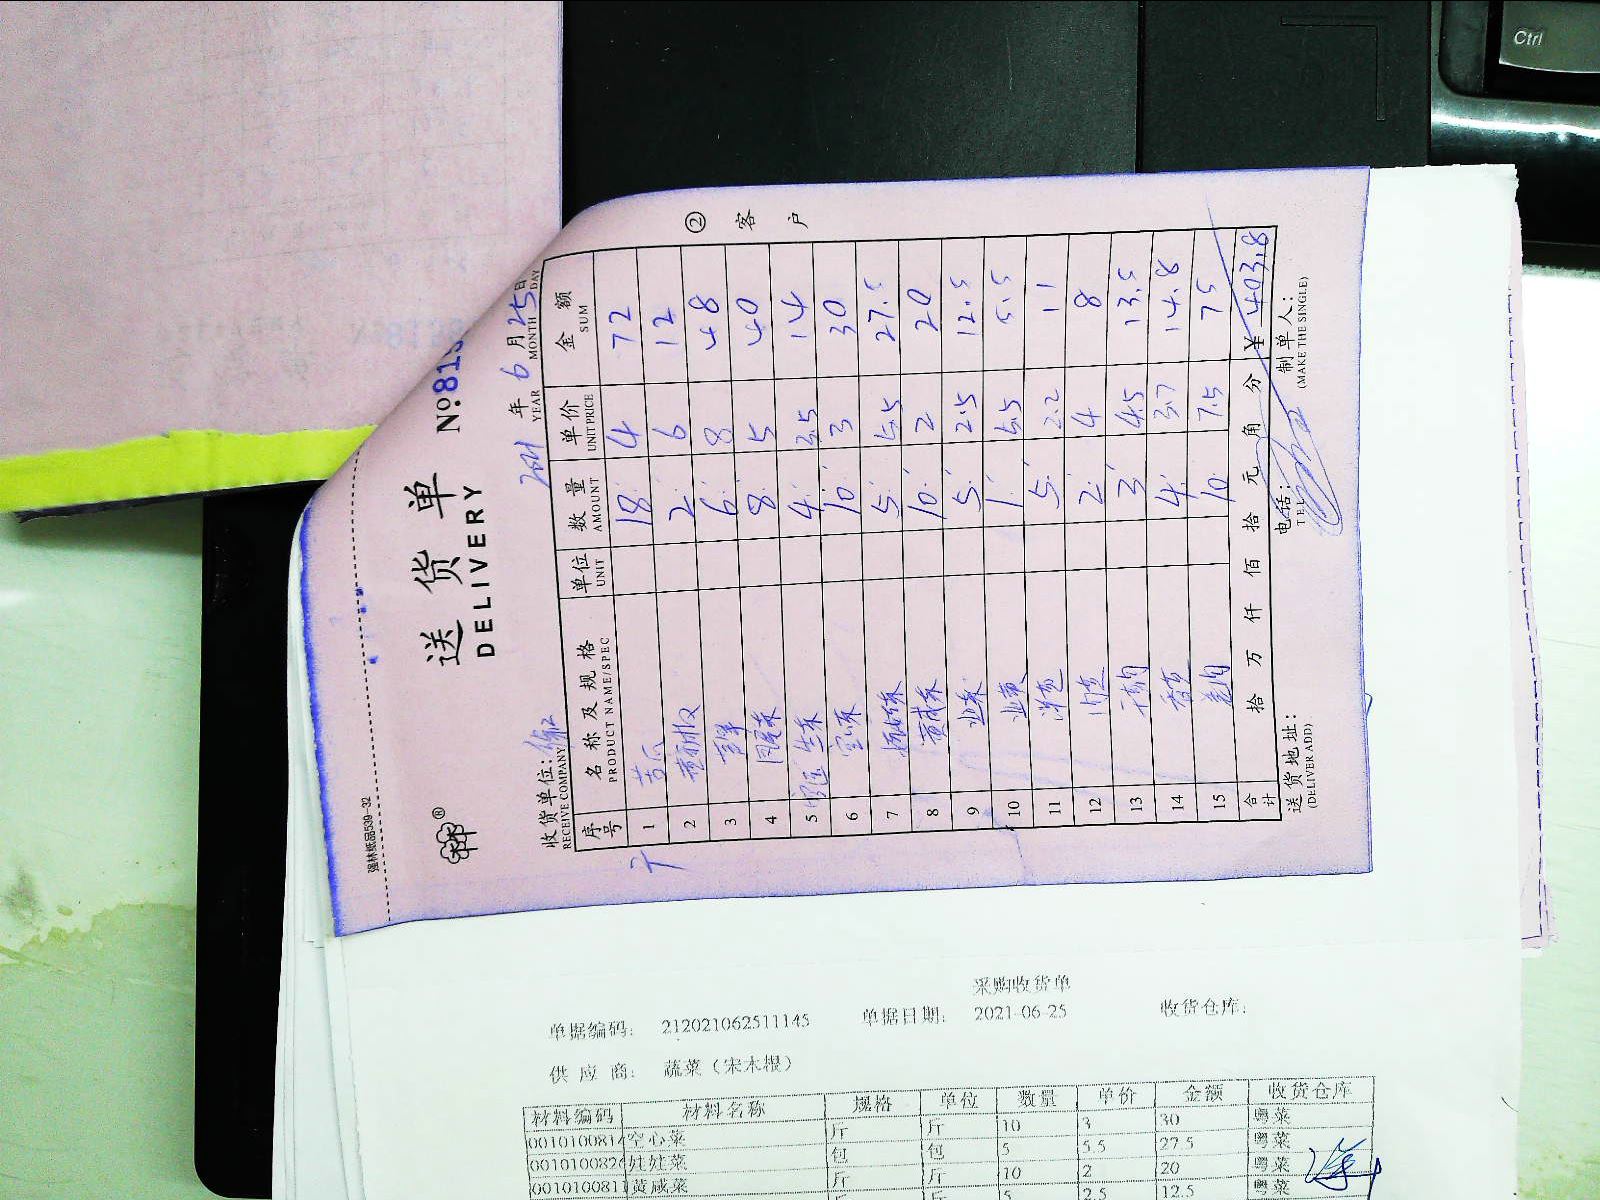 强林纸品539-32
送货单
DELIVERY
№:813
2021年6月25日
YEAR MONTH DAY
收货单位:
RECEIVE COMPANY
② 客户
序号 名称及规格 单位 数量 单价 金额
PRODUCT NAME/SPEC UNIT AMOUNT UNIT PRICE SUM
1 苦瓜 18 4 72
2 2 6 12
3 6 8 48
4 8 5 40
5 生菜 4 3.5 14
6 空心菜 10 3 30
7 娃娃菜 5 5.5 27.5
8 黄咸菜 10 2 20
9 5 2.5 12.5
10 1 5.5 5.5
11 5 2.2 11
12 2 4 8
13 3 4.5 13.5
14 4 3.7 14.8
15 10 7.5 75
合计 拾万仟佰拾元角分 ¥403.8
送货地址: 电话: 制单人:
(DELIVER ADD) TEL (MAKE THE SINGLE)
采购收货单
单据编码: 212021062511145 单据日期: 2021-06-25 收货仓库:
供应商: 蔬菜(宋木根)
材料编码 材料名称 规格 单位 数量 单价 金额 收货仓库
001010081 空心菜 斤 斤 10 3 30 粤菜
001010082 娃娃菜 包 包 5 5.5 27.5 粤菜
001010081 黄咸菜 斤 斤 10 2 20 粤菜
斤 斤 5 2.5 12.5 粤菜
Ctrl